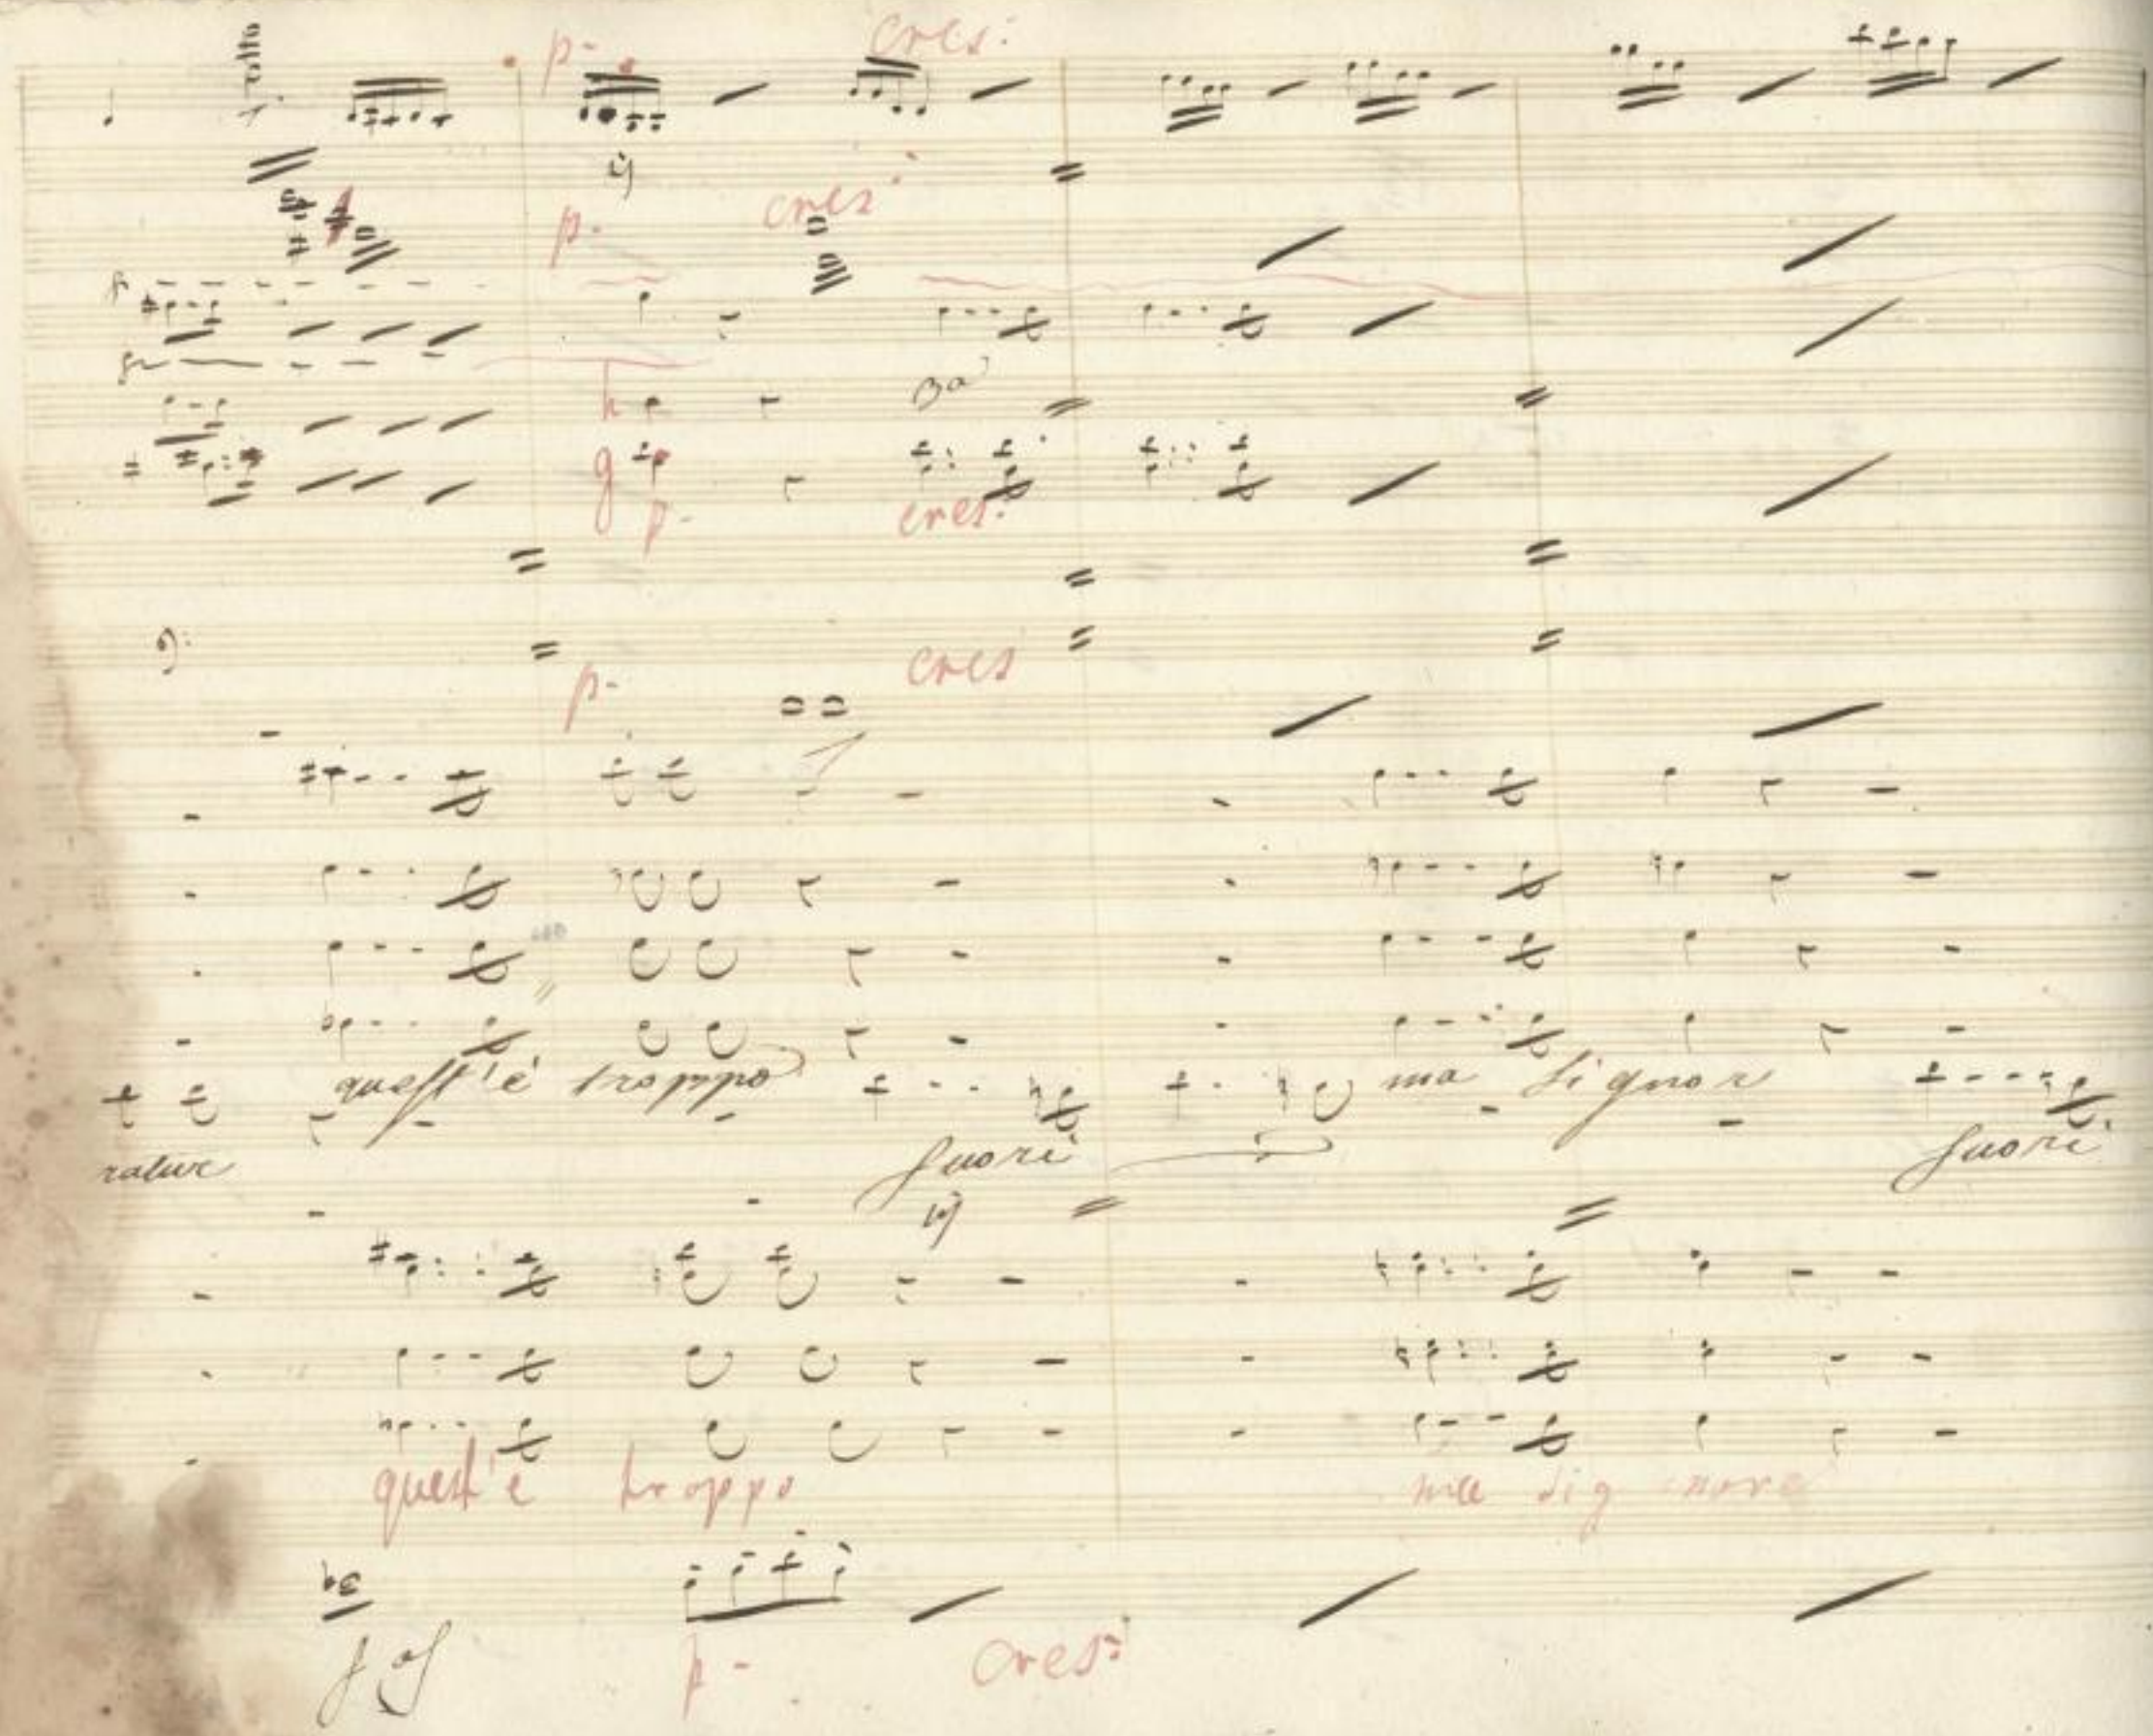 p. cres:
cres:
p.
3a
p. cres:
p. cres
quest'è troppo ma Signor
rature fuori fuori
quest'e troppo ma Sig nore
p. cres: